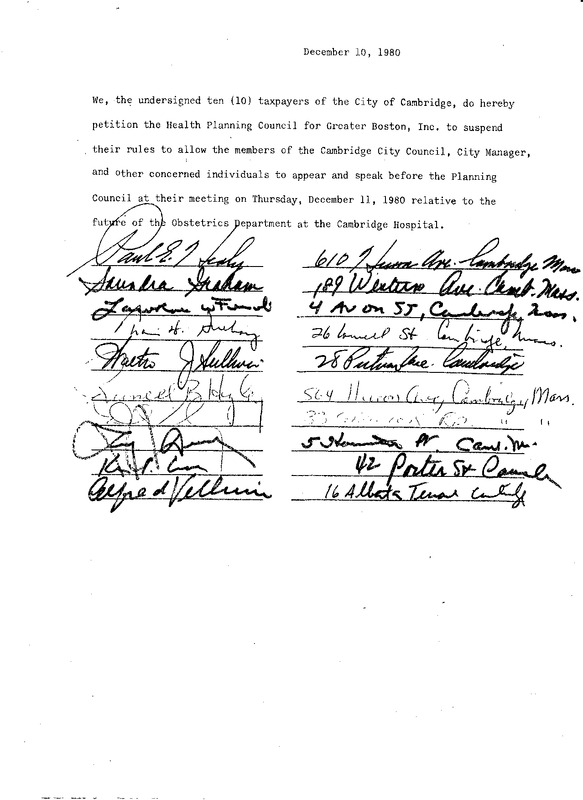 December 10, 1980
We, the undersigned ten (10) taxpayers of the City of Cambridge, do hereby
petition the Health Planning Council for Greater Boston, Inc. to suspend
their rules to allow the members of the Cambridge City Council, City Manager,
and other concerned individuals to appear and speak before the Planning
Council at their meeting on Thursday, December 11, 1980 relative to the
future of the Obstetrics Department at the Cambridge Hospital.
Paul E. Healy 610 Huron Ave. Cambridge Mass
Saundra Graham 189 Western Ave. Camb. Mass.
4 Avon St, Cambridge, Mass.
26 Lowell St Cambridge, Mass.
Walter J Sullivan 28 Putnam Ave. Cambridge
564 Huron Ave, Cambridge, Mass.
33 Rd. " "
5 Camb. M.
42 Porter St Camb
Alfred Vellucci 16